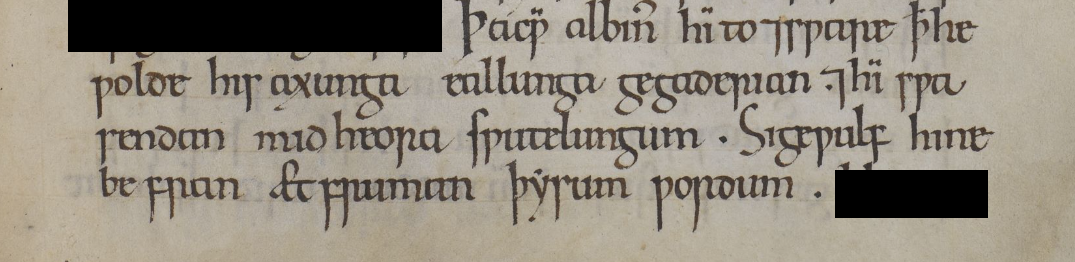 Þa cƿ̄ albin̄ hī to ⁊sƿare ꝥ he
ƿolde his axunga eallunga gegaderian .⁊ hī sƿa
rendan mid heora sƿutelungum . Sigeƿulf hine
be fran æt fruman þẏsum ƿordum .